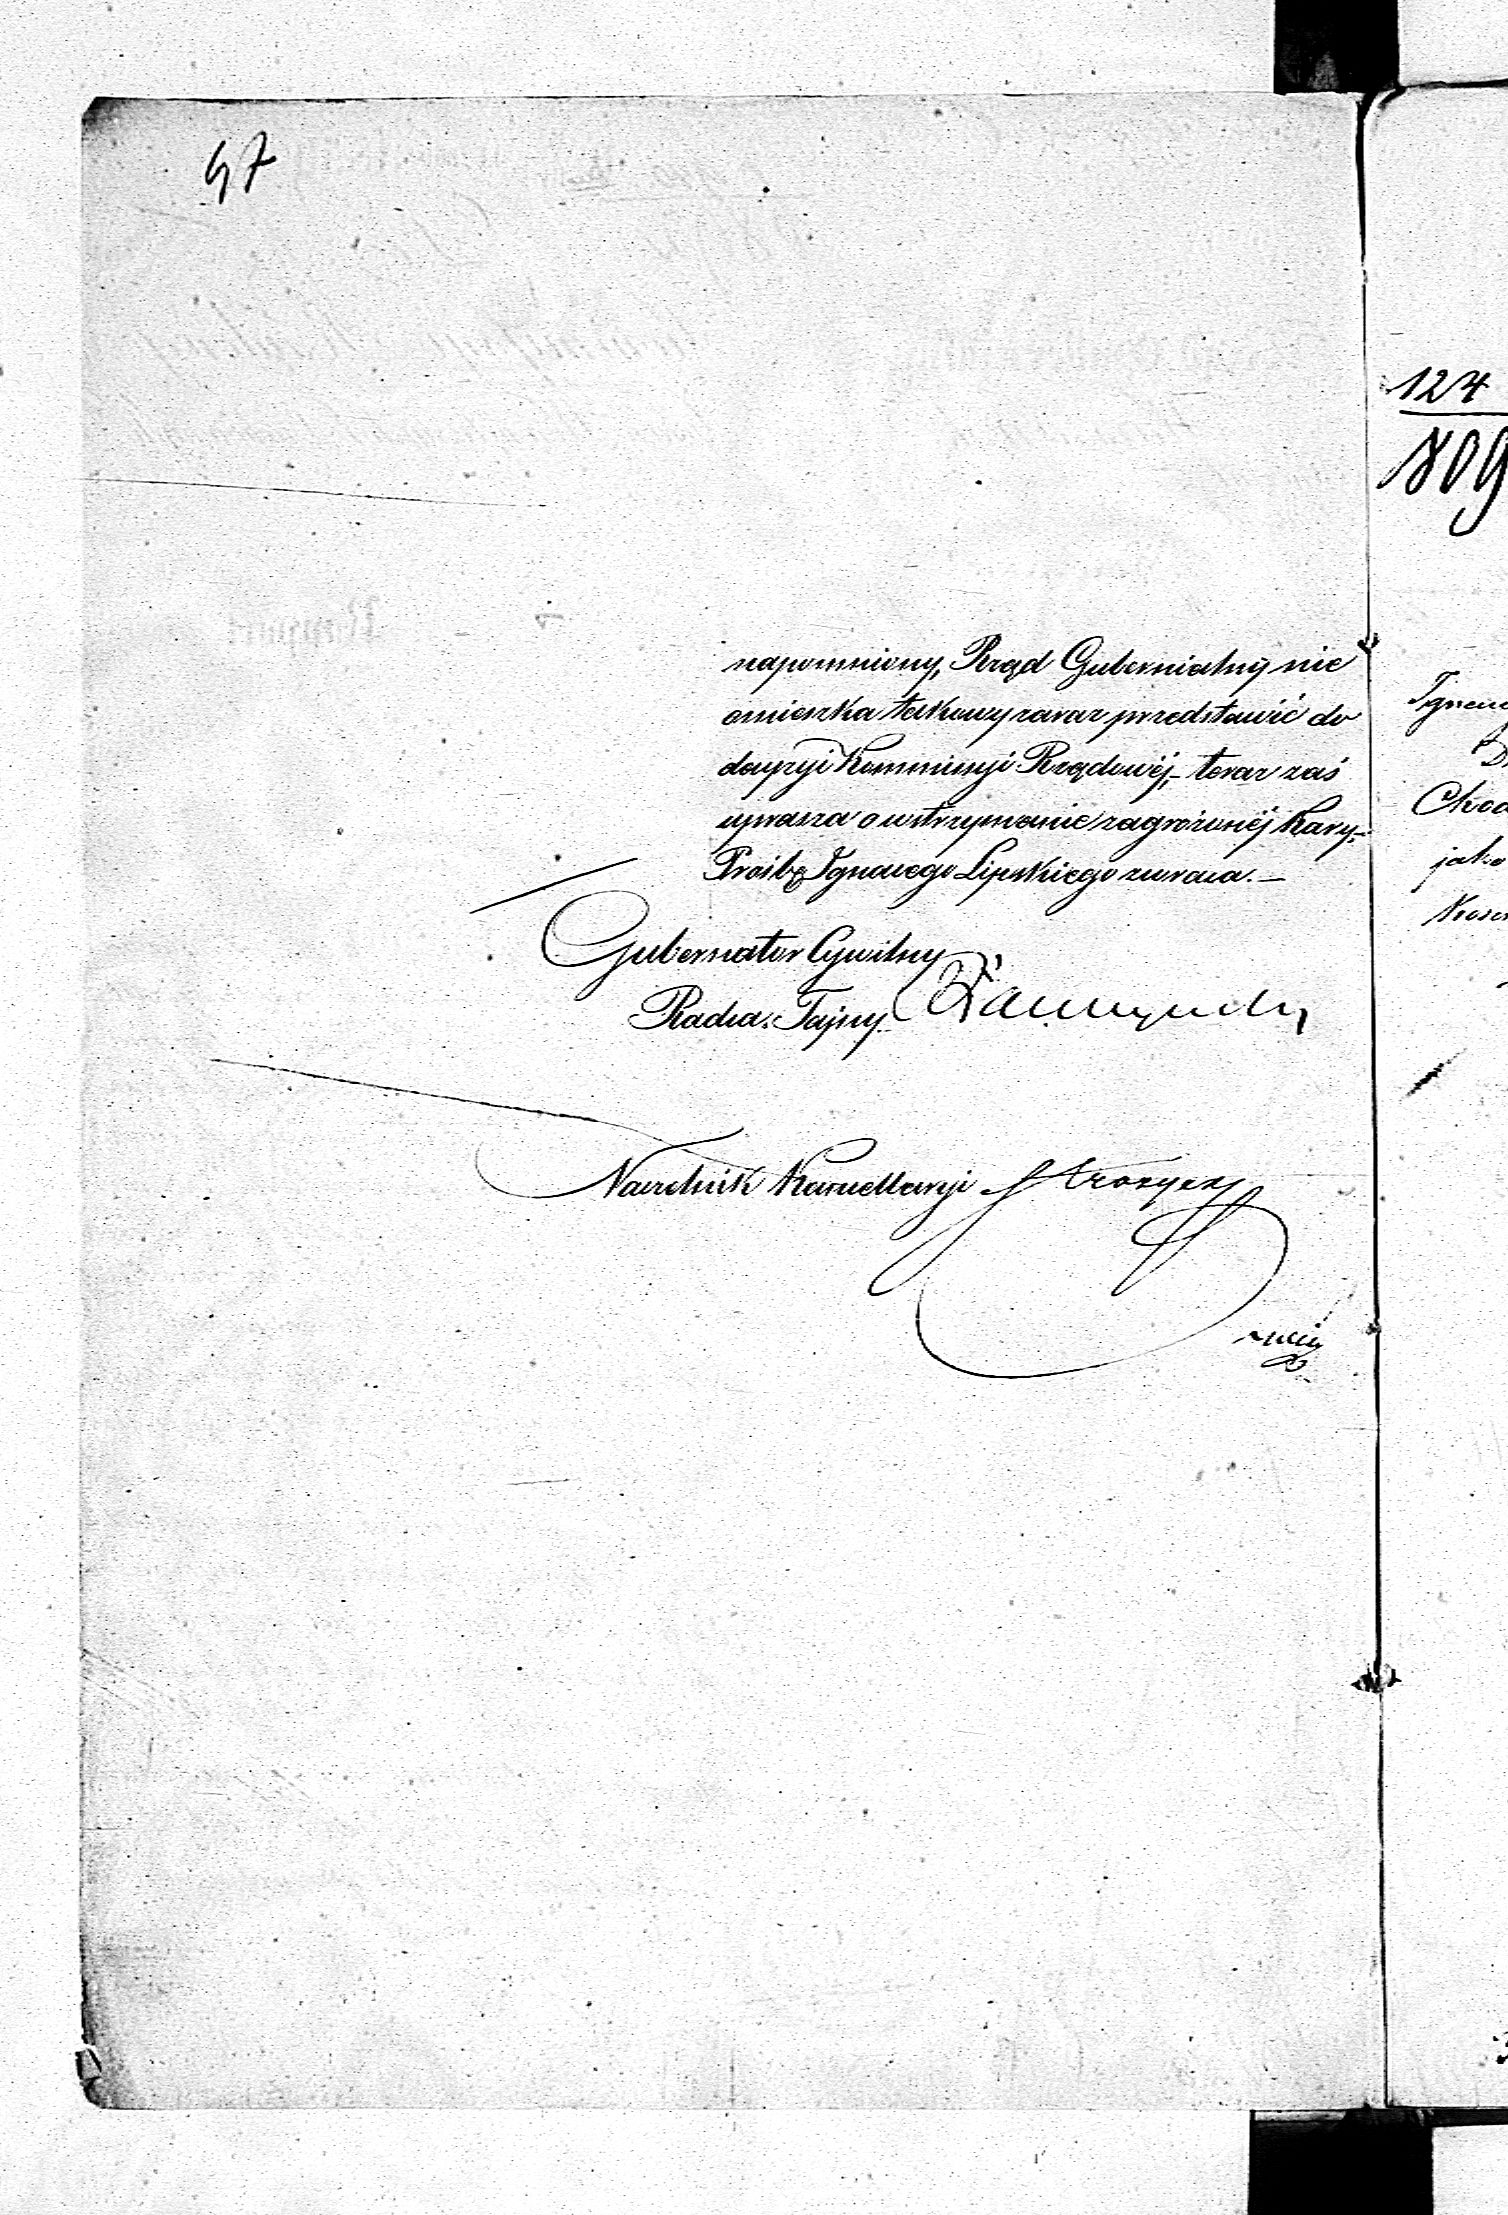 47
napomniony, Rząd Gubernialny nie
omieszka takowy zaraz przedstawić do
decyzyi Kommissyi Rządowéj, teraz zaś
uprasza o wstrzymanie zagrożonéj Kary.
Prośbę Ignacego Lipskiego zwraca. —
Gubernator Cywilny
Radca Tajny
Naczelnik Kancellaryi
124
809
Chod
jako